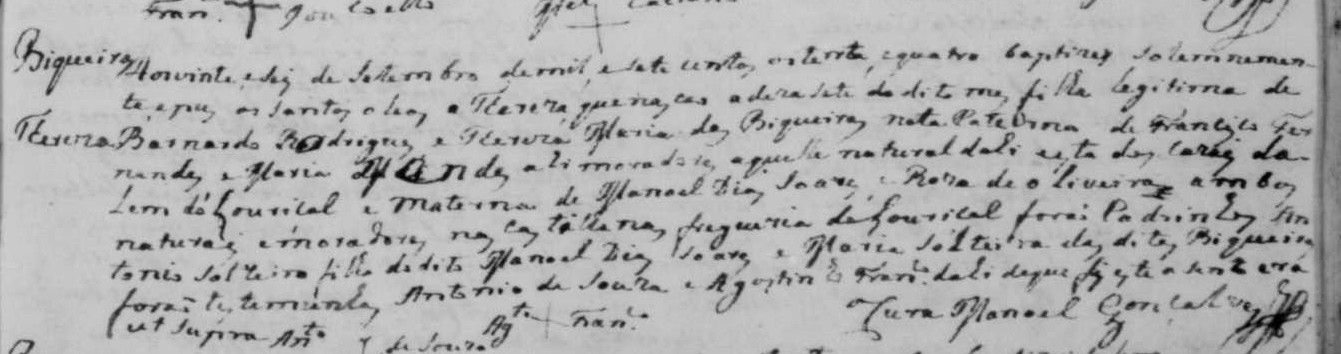 Biqueiras Aos vinte, e seis de Setembro de mil, e sete centos, outenta, e quatro baptizei solemnemen-
te, e pus os santos oleos a Thereza que nasceo a dezasete do dito mes, filha legitima de
Thereza Bernardo Rodrigues e Thereza Maria das Biqueiras neta Paterna de Francisco Fer
nandes e Maria Mendes ali moradores, aquelle natural dali e esta dos
Lem do Lourical e Materna de Manoel Dias Soares e Roza de oliveira ambos
naturaes e moradores nas freguezia do Lourical foraõ Padrinhos An
tonio solteiro filho do dito Manoel Dias Soares e Maria solteira das ditas Biqueiras
foraõ testemunhas Antonio de Souza e Agostinho Fran.co dali de que fis este asento era
ut supra Ant.o de Souza Ag.to + Fran.co Cura Manoel Gonçalves